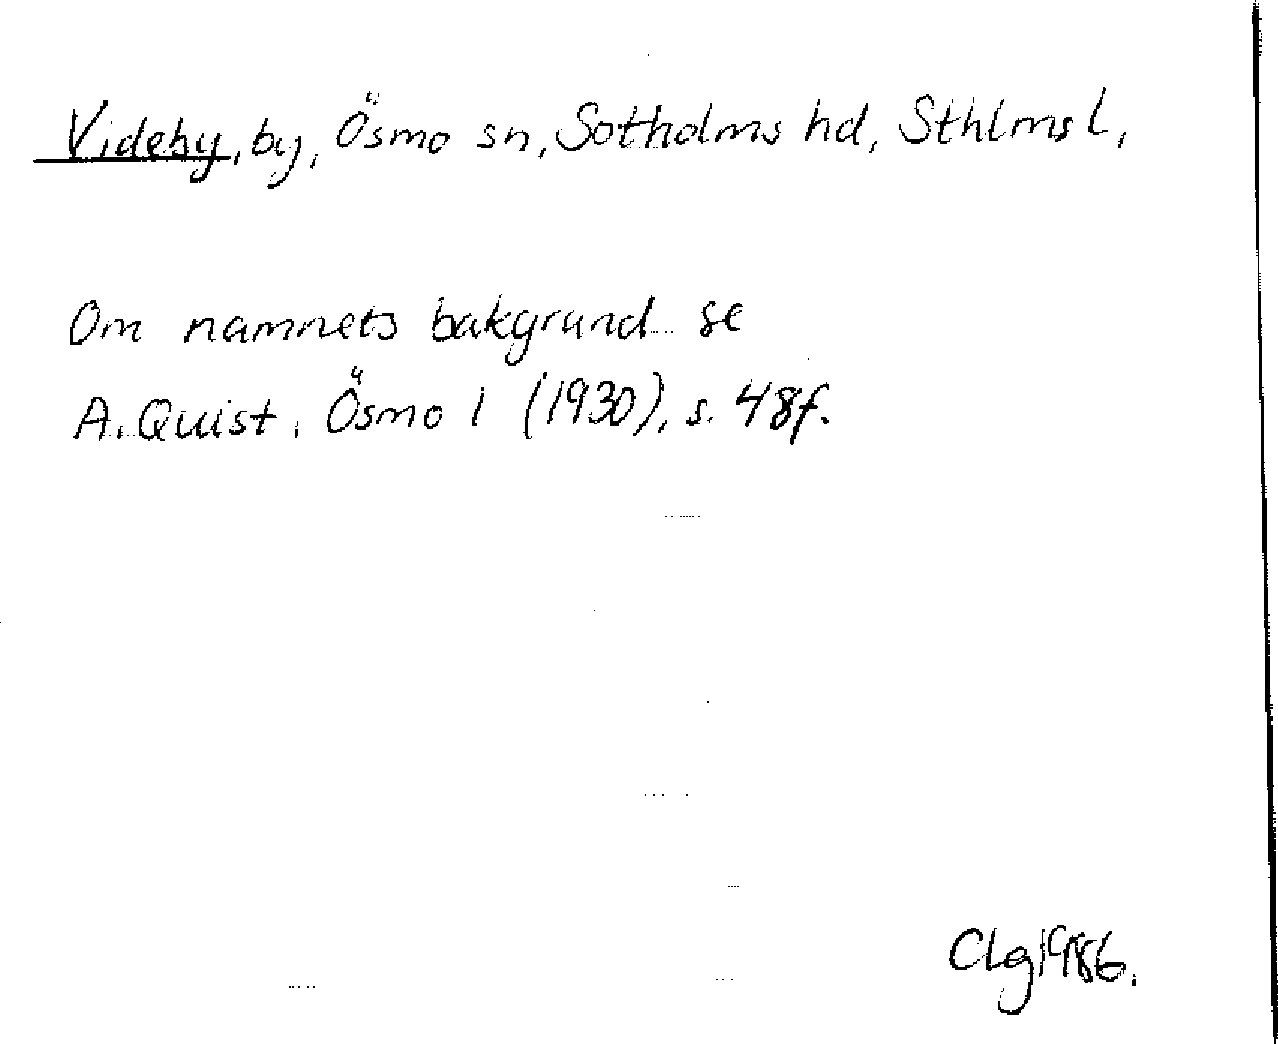 Videby, by, Ösmo sn, Sotholms hd, Sthlms l,
Om namnets bakgrund se
A. Quist, Ösmo 1 (1930), s. 48f.
Clg 1986.